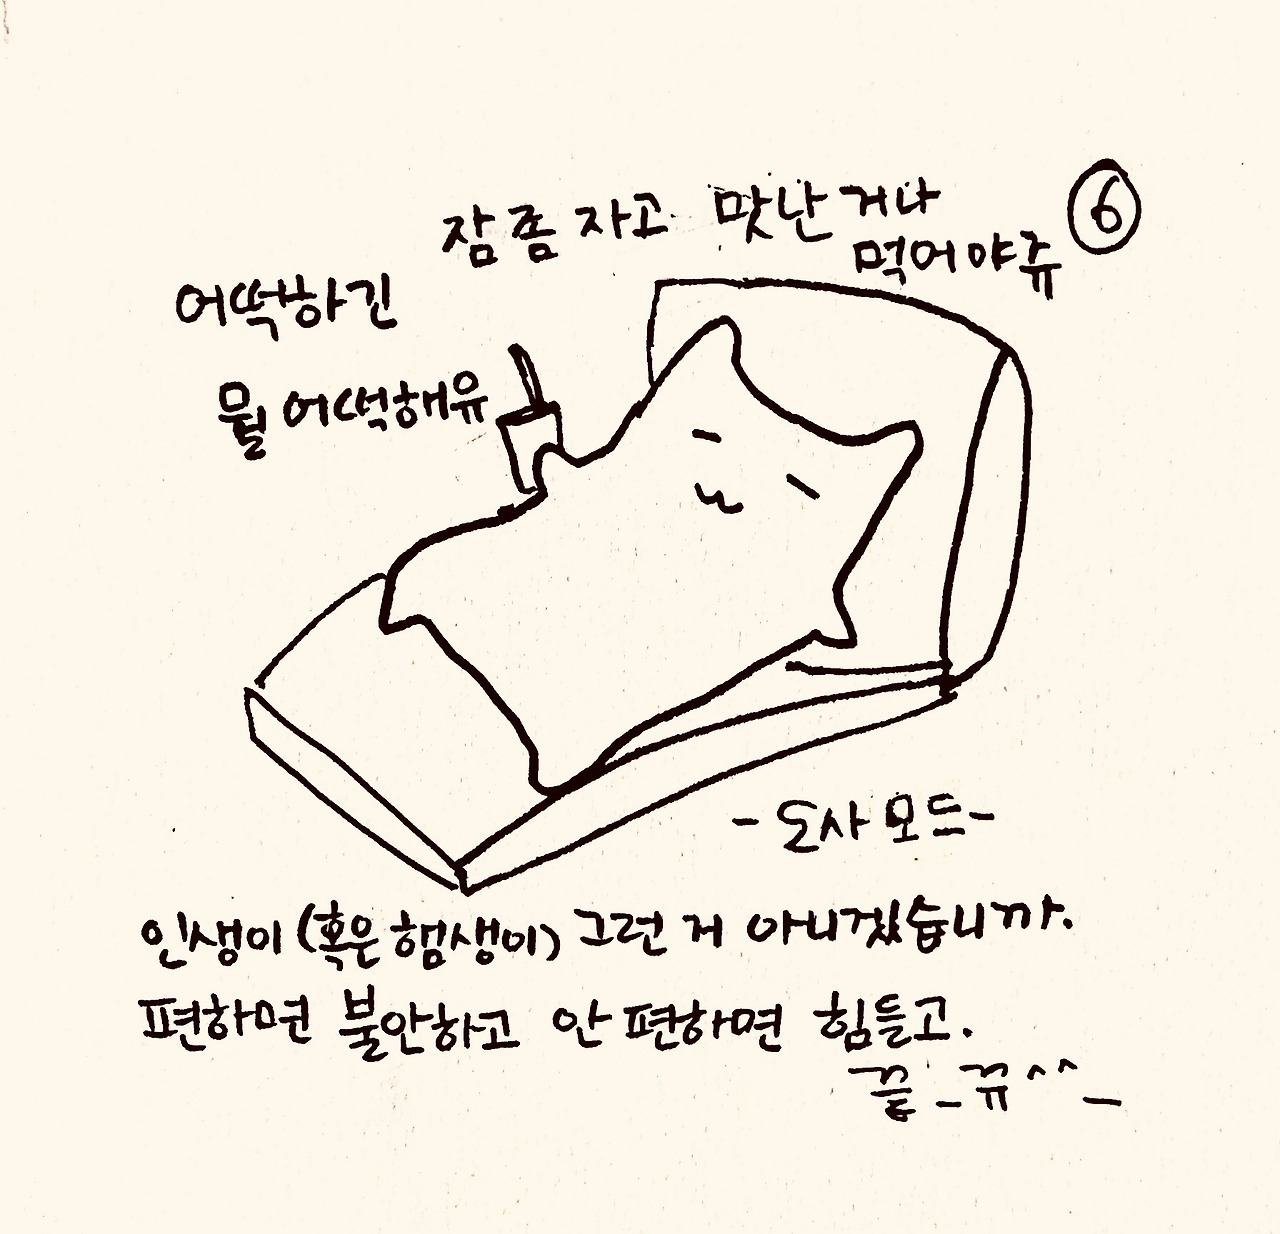 ⑥
어떡하긴
뭘 어떡해유
잠 좀 자고 맛난 거나
먹어야쥬
- 도사 모드 -
인생이 (혹은 햄생이) 그런 거 아니겠습니까.
편하면 불안하고 안 편하면 힘들고.
끝_뀨^^_